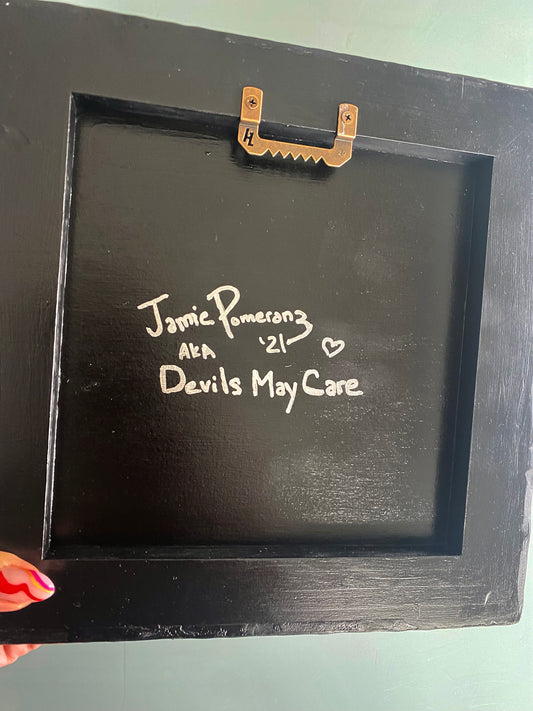 HL
Jamie Pomeranz
AKA '21 ♡
Devils May Care